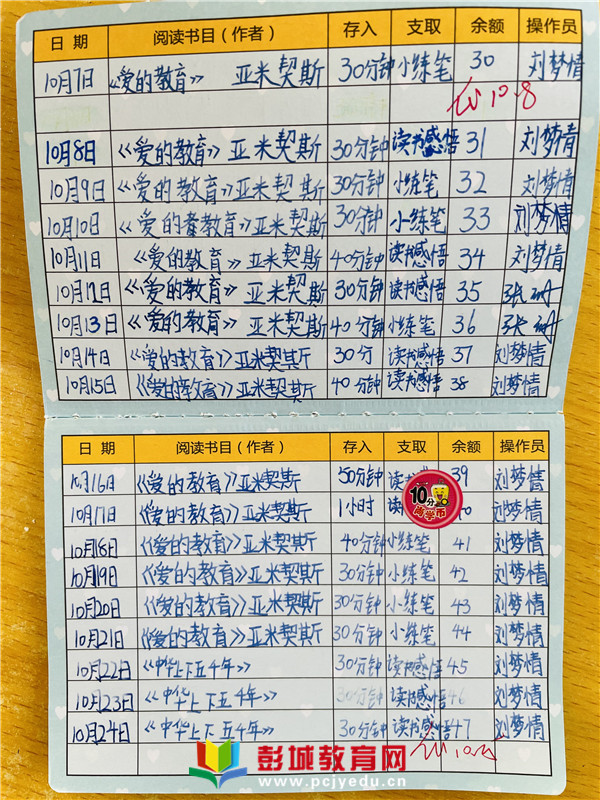 日 期 阅读书目（作者） 存入 支取 余额 操作员
10月7日 《爱的教育》 亚米契斯 30分钟 小练笔 30 刘梦情
10.8
10月8日 《爱的教育》亚米契斯 30分钟 读书感悟 31 刘梦情
10月9日 《爱的教育》亚米契斯 30分钟 小练笔 32 刘梦情
10月10日 《爱的教育》亚米契斯 30分钟 小练笔 33 刘梦情
10月11日 《爱的教育》亚米契斯 40分钟 读书感悟 34 刘梦情
10月12日 《爱的教育》亚米契斯 30分钟 读书感悟 35 张
10月13日 《爱的教育》亚米契斯 40分钟 小练笔 36 张
10月14日 《爱的教育》亚米契斯 30分 读书感悟 37 刘梦情
10月15日 《爱的教育》亚米契斯 40分钟 读书感悟 38 刘梦情
日 期 阅读书目（作者） 存入 支取 余额 操作员
10月16日 《爱的教育》亚米契斯 50分钟 读书感 39 刘梦情
10月17日 《爱的教育》亚米契斯 1小时 读 40 刘梦情
10分
跨学币
10月18日 《爱的教育》亚米契斯 40分钟 小练笔 41 刘梦情
10月19日 《爱的教育》亚米契斯 30分钟 小练笔 42 刘梦情
10月20日 《爱的教育》亚米契斯 30分钟 小练笔 43 刘梦情
10月21日 《爱的教育》亚米契斯 30分钟 小练笔 44 刘梦情
10月22日 《中华上下五千年》 30分钟 读书感悟 45 刘梦情
10月23日 《中华上下五千年》 30分钟 读书感悟 46 刘梦情
10月24日 《中华上下五千年》 30分钟 读书感悟 47 刘梦情
彭城教育网
www.pcjyedu.cn